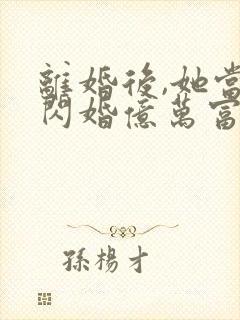 離婚後,她當
閃婚億萬富
孫楊才